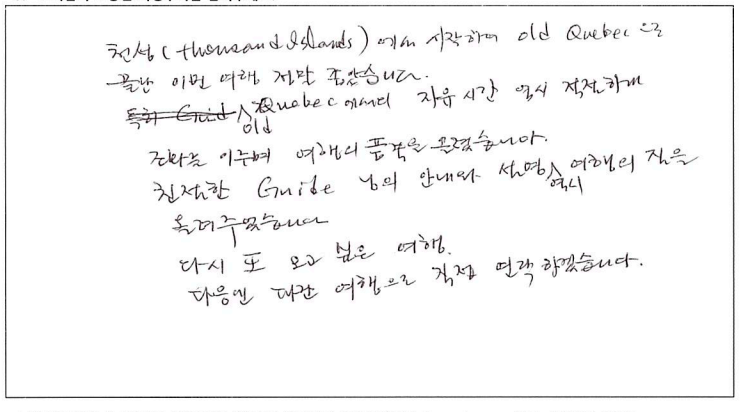 천섬(thousand Islands)에서 시작하여 old Quebec으로
끝난 이번 여행 정말 좋았습니다.
특히 Guid old Quebec에서의 자유시간 역시 적절하게
조화를 이루며 여행의 품격을 올렸습니다.
친절한 Guide 님의 안내와 설명 역시 여행의 질을
올려주었습니다
다시 또 오고 싶은 여행.
다음엔 대간 여행으로 직접 연락하겠습니다.